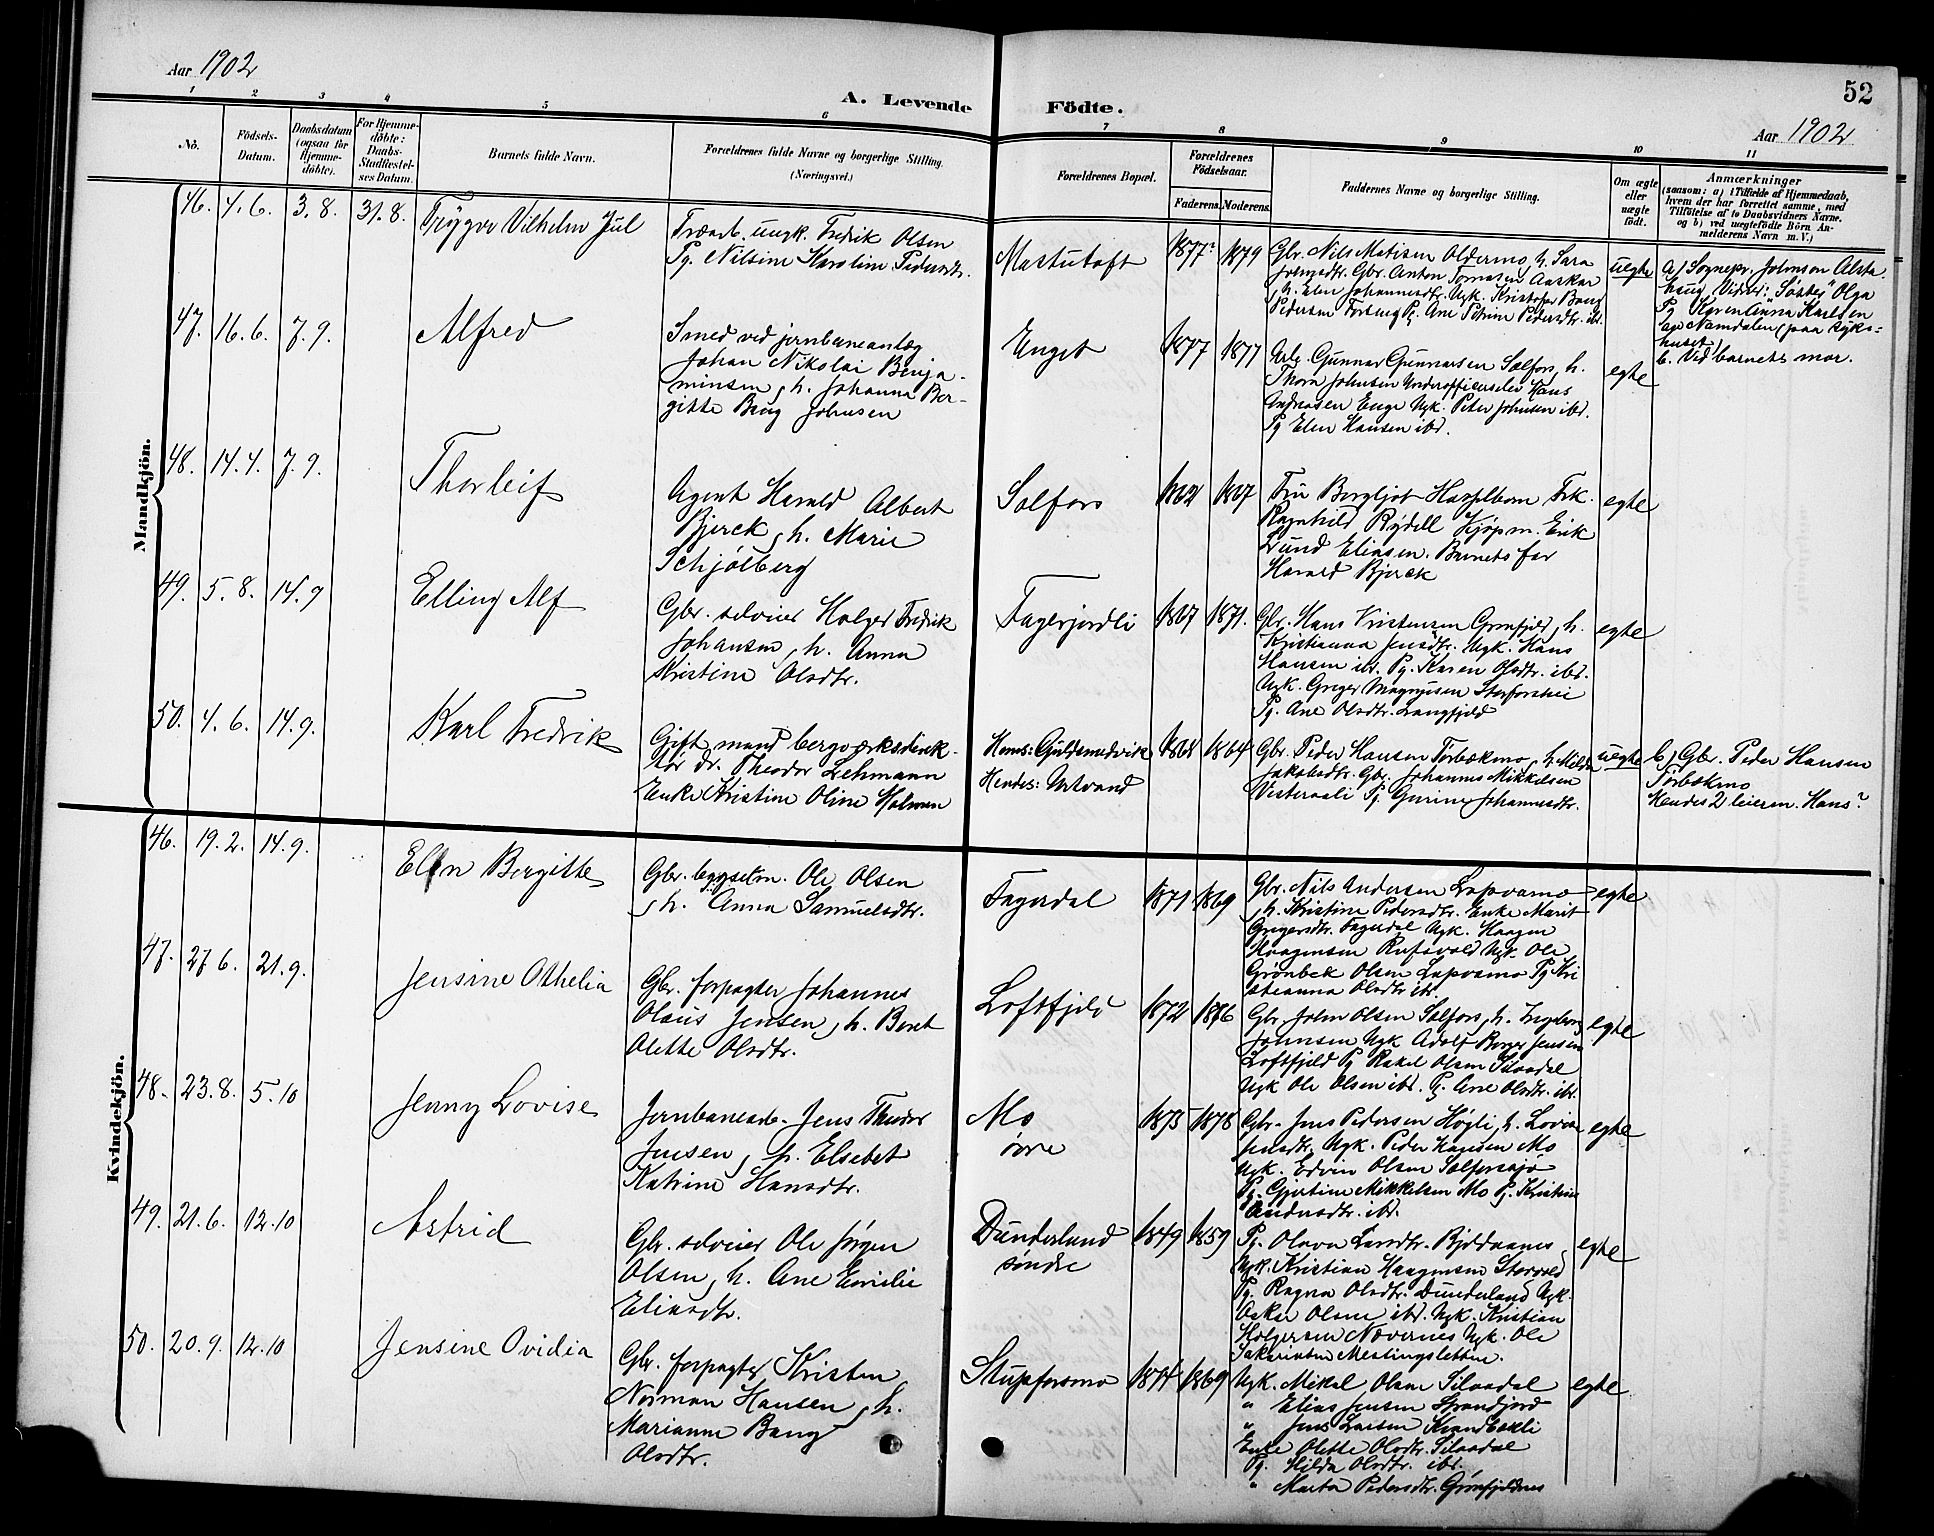 Aar 1902
A. Levende Födte.
52
Aar 1902
1 2 3 4 5 6 7 8 9 10 11
No.
Födsels-Datum.
Daabsdatum (ogsaa for Hjemme-döbte).
For Hjemme-döbte: Daabs-Stadfæstel-ses Datum.
Barnets fulde Navn.
Forældrenes fulde Navne og borgerlige Stilling.
(Næringsvei.)
Forældrenes Bopæl.
Forældrenes Födselsaar.
Faderens. Moderens.
Faddernes Navne og borgerlige Stilling.
Om ægte eller uægte födt.
Anmærkninger
(saasom: a) i Tilfælde af Hjemmedaab,
hvem der har forrettet samme, med
Tilföielse af to Daabsvidners Navne.
og b) ved uægtefödte Börn An-
melderens Navn m. V.)
Mandkjön.
46. 4.6. 3.8. 31.8. Trygve Vilhelm Jul
Træarb. ungk. Fredrik Olsen
Pg. Nilsine Karoline Pedersdtr.
Mastutoft 1877? 1879
Gbr. Nils Matisen Oldermo, h. Sara
Jørensdtr. Gbr. Anton Tomasen Aaskar
, h. Elen Johannesdtr. Ugk. Kristofer Bang
Pedersen Forsmo Pg. Ane Petrine Pedersdtr. ibd.
uegte
a) Sognepr. Johnson Alsta-
haug. Vidner: "Søster" Olga
Pg. Karen Anna Karlsen
av Namdalen (paa syke-
huset)
b. Ved barnets mor.
47. 16.6. 7.9. Alfred
Smed ved jernbaneanlæg
Johan Nikolai Benja-
minsen, h. Johanna Ber-
gitte Bang Johnsen
Enget 1877 1877
Arb. Gunnar Gunnarsen Selfors, h.
Thora Johnsen Underofficerselev Hans
Andreasen Enge Ugk. Peter Johnsen ibd.
Pg Elen Hansen ibd.
egte
48. 14.4. 7.9. Thorleif
Agent Harald Albert
Bjerck, h. Marie
Schjølberg
Selfors 1862 1867
Fru Bergljot Hasselbom Frk.
Ragnhild Rydell Kjøpm. Erik
Lund Eliasen. Barnets far
Harald Bjerck
egte
49. 5.8. 14.9 Elling Alf
Gbr. selveier Holger Fredrik
Johansen, h. Anna
Kristine Olsdtr.
Fagerjordli 1867 1871.
Gbr. Hans Kristensen Grønfjeld, h.
Kristianna Jensdtr. Ugk. Hans
Hansen ibd. Pg. Karen Olsdtr. ibd.
Ugk. Greger Magnusen Storforshei
Pg. Ane Olsdtr. Langfjeld
egte
50. 4.6. 14.9. Karl Fredrik
Gift mand bergværksdirek-
tør dr. Theodor Lehmann
Enke Kristine Oline Holmen
Hans: Guldsmedvik
Hendes: Urtvand
1868 1864
Gbr. Peder Hansen Forbækmo, h. Milda
Jakobsdtr. Gbr. Johannes Mikkelsen
Vesteraali Pg. Gurine Johannesdtr.
uegte
b) Gbr. Peder Hansen
Forbækmo
Hendes 2 leierm. Hans?
Kvindekjön.
46. 19.2. 14.9. Elen Bergitte
Gbr. bygselm. Ole Olsen
, h. Anna Samuelsdtr.
Fagerdal 1871 1869
Gbr. Nils Andersen Lapvamo
, h. Kristine Pedersdtr. Enke Marit
Gregersdtr. Fagerdal Ugk. Haagen
Haagensen Rufsvold Ugk. Ole
Grønbek Olsen Lapvamo Pg. Kri
stianna Olsdtr. ibd.
egte
47. 27.6. 21.9. Jensine Othelia
Gbr. forpagter Johannes
Olaus Jensen, h. Beret
Olette Olsdtr.
Loftfjeld 1872 1876
Gbr. John Olsen Selfors, h. Ingeborg
Johnsen Ugk Adolf Borger Jensen
Loftfjeld Pg Rakel Olsen Silaadal
Ugk Ole Olsen ibd. Pg. Ane Olsdtr. ibd.
egte
48. 23.8. 5.10 Jenny Lovise
Jernbanearb. Jens Theodor
Jensen, h. Elsebet
Katrine Hansdtr.
Mo
øvre
1875 1878
Gbr. Jens Pedersen Høgli, h. Lovise
Jensdtr. Ugk. Peder Hansen Mo
Ugk. Edvin Olsen Selforssjø
Pg. Gjertine Mikkelsen Mo Pg. Kristine
Andersdtr. ibd.
egte
49. 21.6. 12.10 Astrid
Gbr. selveier Ole Jørgen
Olsen, h. Ane Emilie
Eliasdtr.
Dunderland
søndre
1849 1859
Pg. Olava Larsdtr. Bjøllaanes
Ugk. Kristian Haagensen Storvold
Pg. Ragna Olsdtr. Dunderland Ugk.
Oskar Olsen ibd. Ugk. Kristian
Holgersen Nævernes Ugk. Ole
Sakariasen Mestingsletten.
egte
50. 20.9. 12.10 Jensine Ovidia
Gbr. forpagter Kristen
Norman Hansen, h.
Marianne Bang
Olsdtr.
Stupforsmo 1877 1869
Ugk. Mikal Olsen Silaadal
" Elias Jensen Strandjord
" Jens Larsen
Enke Olette Olsdtr. Silaadal
Pg. Hilda Olsdtr. ibd.
" Marta Pedersdtr. Grønfjeldnes
egte